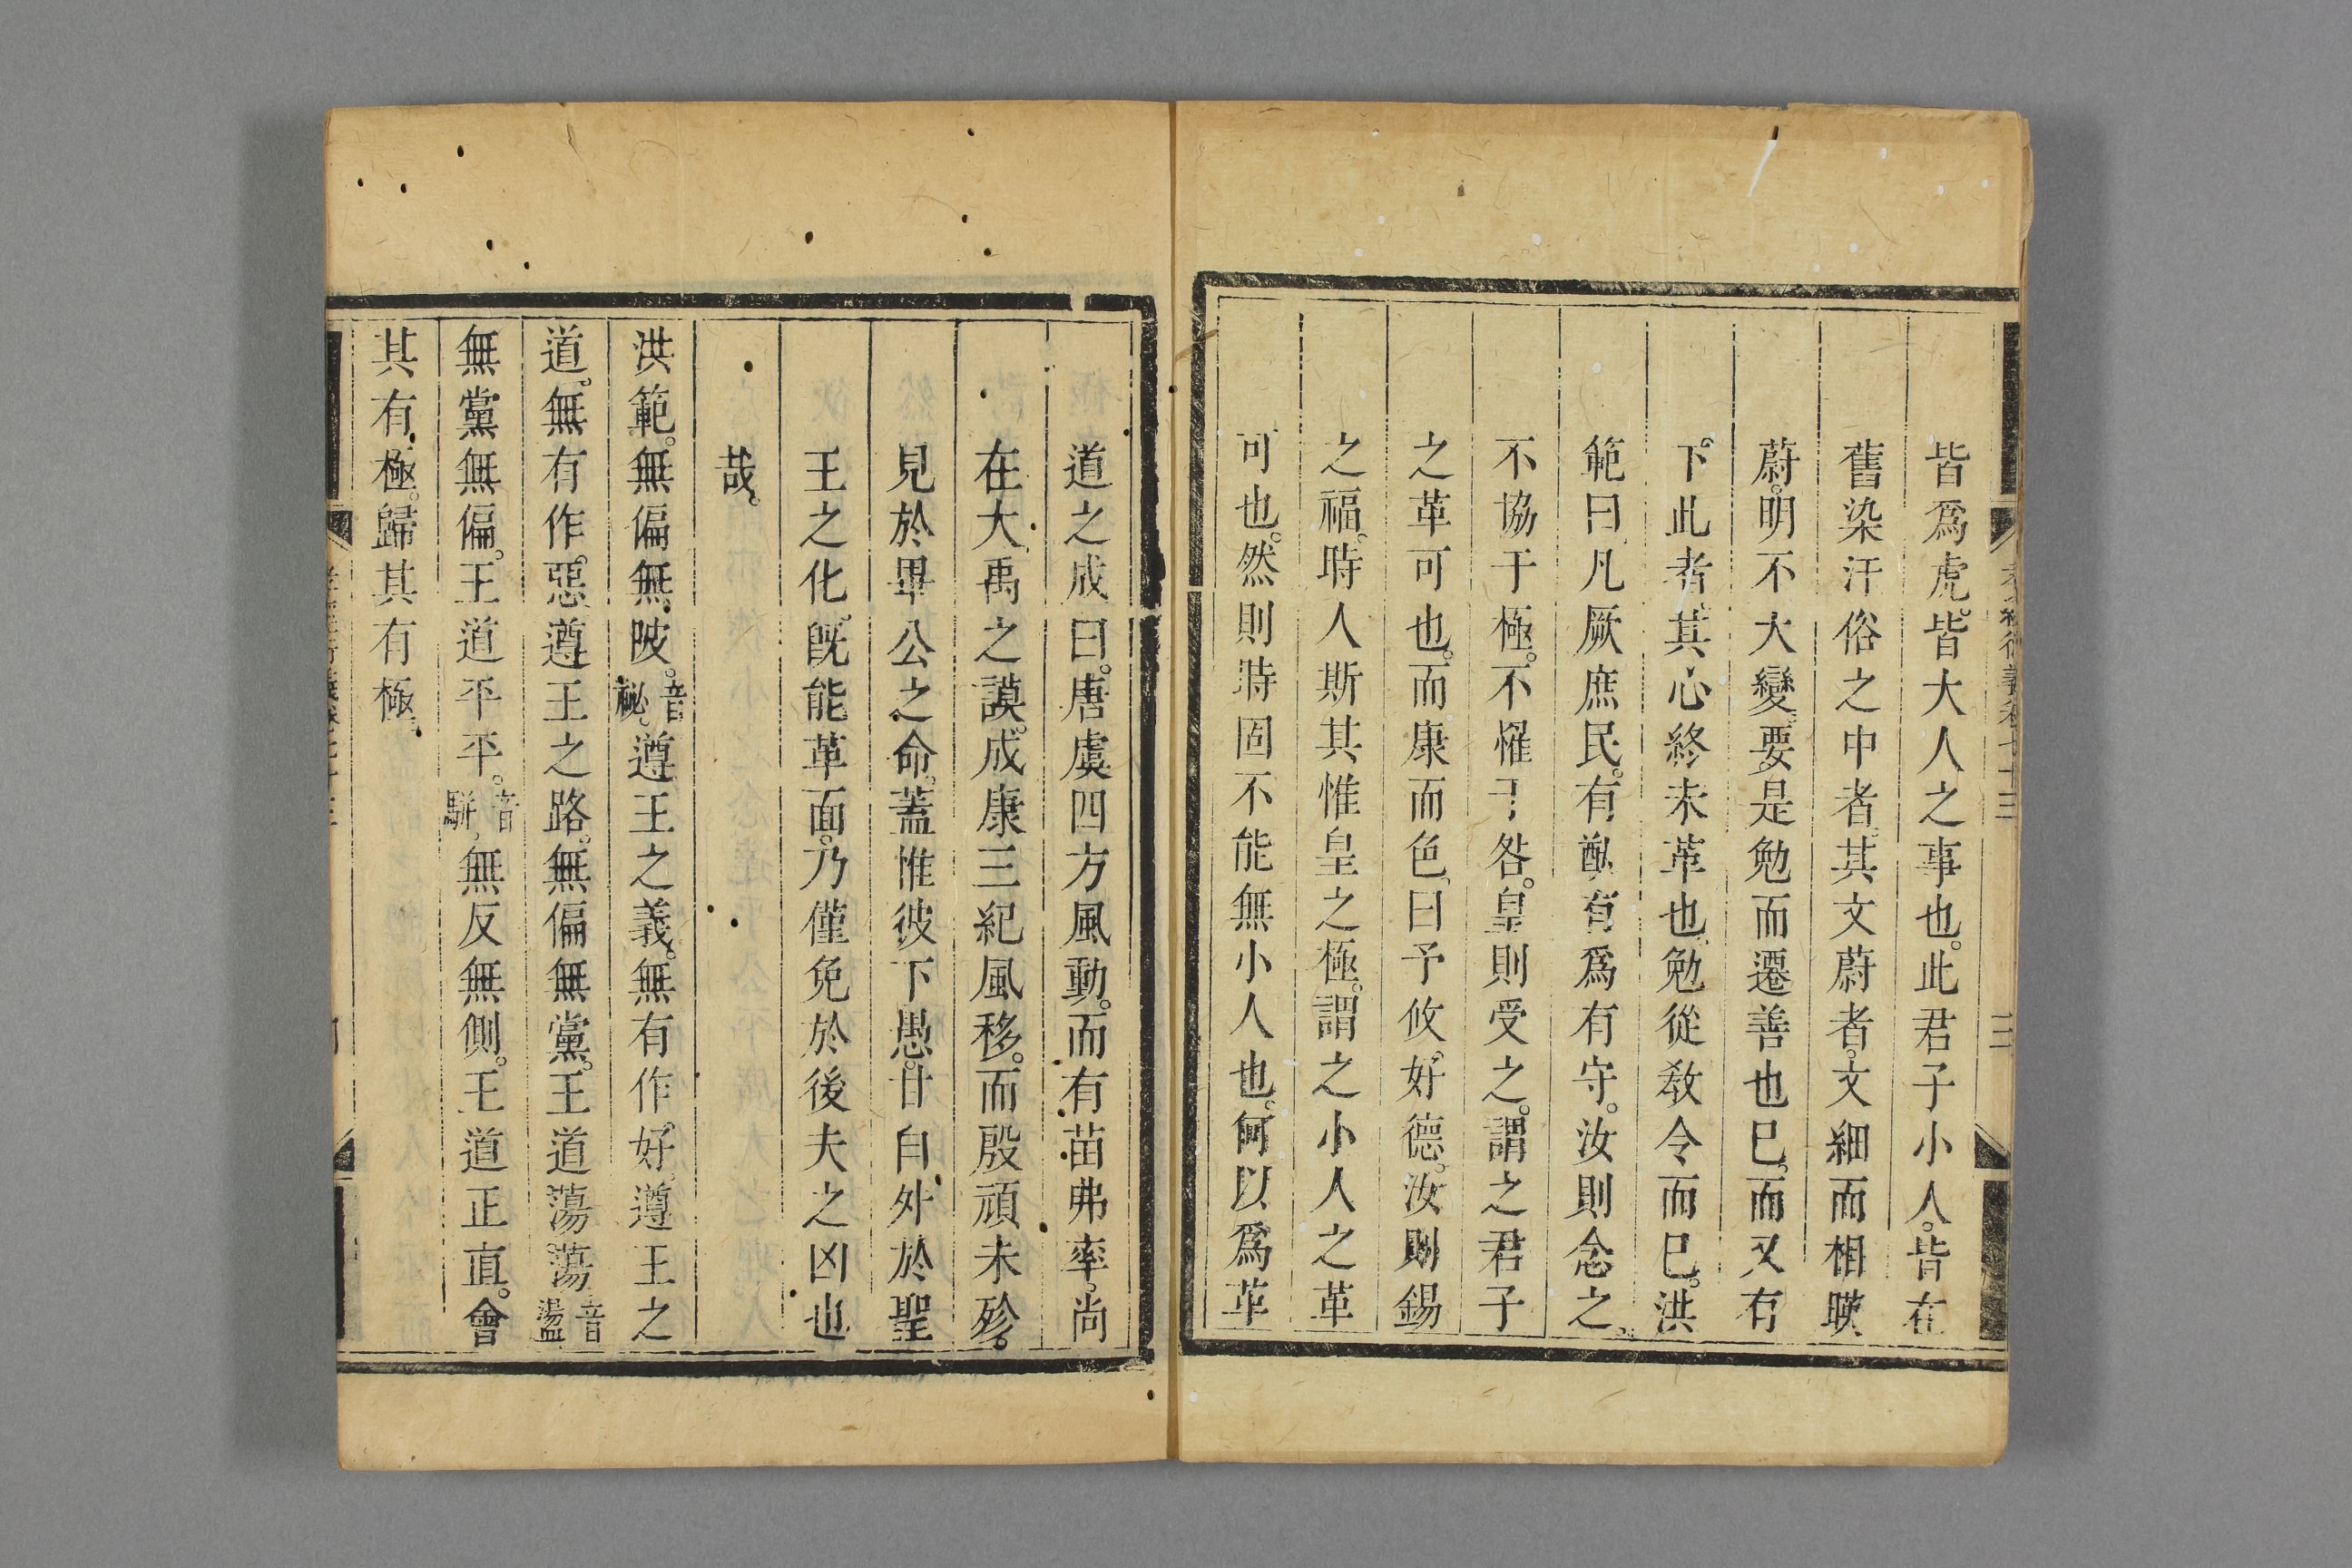 皆爲虎。皆大人之事也。此君子小人。皆在
舊染汙俗之中者。其文蔚者。文細而相暎
蔚。明不大變。要是勉而遷善也已。而又有
下此者。其心終未革也。勉從教令而已。洪
範曰。凡厥庶民。有猷有爲有守。汝則念之。
不協于極。不罹于咎。皇則受之。謂之君子
之革可也。而康而色。曰予攸好德。汝則錫
之福。時人斯其惟皇之極。謂之小人之革
可也。然則時固不能無小人也。何以爲革
道之成曰。唐虞四方風動。而有苗弗率。尚
在大禹之謨。成康三紀風移。而殷頑未殄。
見於畢公之命。蓋惟彼下愚。甘自外於聖
王之化。旣能革面。乃僅免於後夫之凶也
哉。
洪範。無偏無陂。音祕。遵王之義。無有作好。遵王之
道。無有作。惡遵王之路。無偏無黨。王道蕩蕩。音盪
無黨無偏。王道平平。音駢。無反無側。王道正直。會
其有極。歸其有極。
孝經衍義卷七十三
三